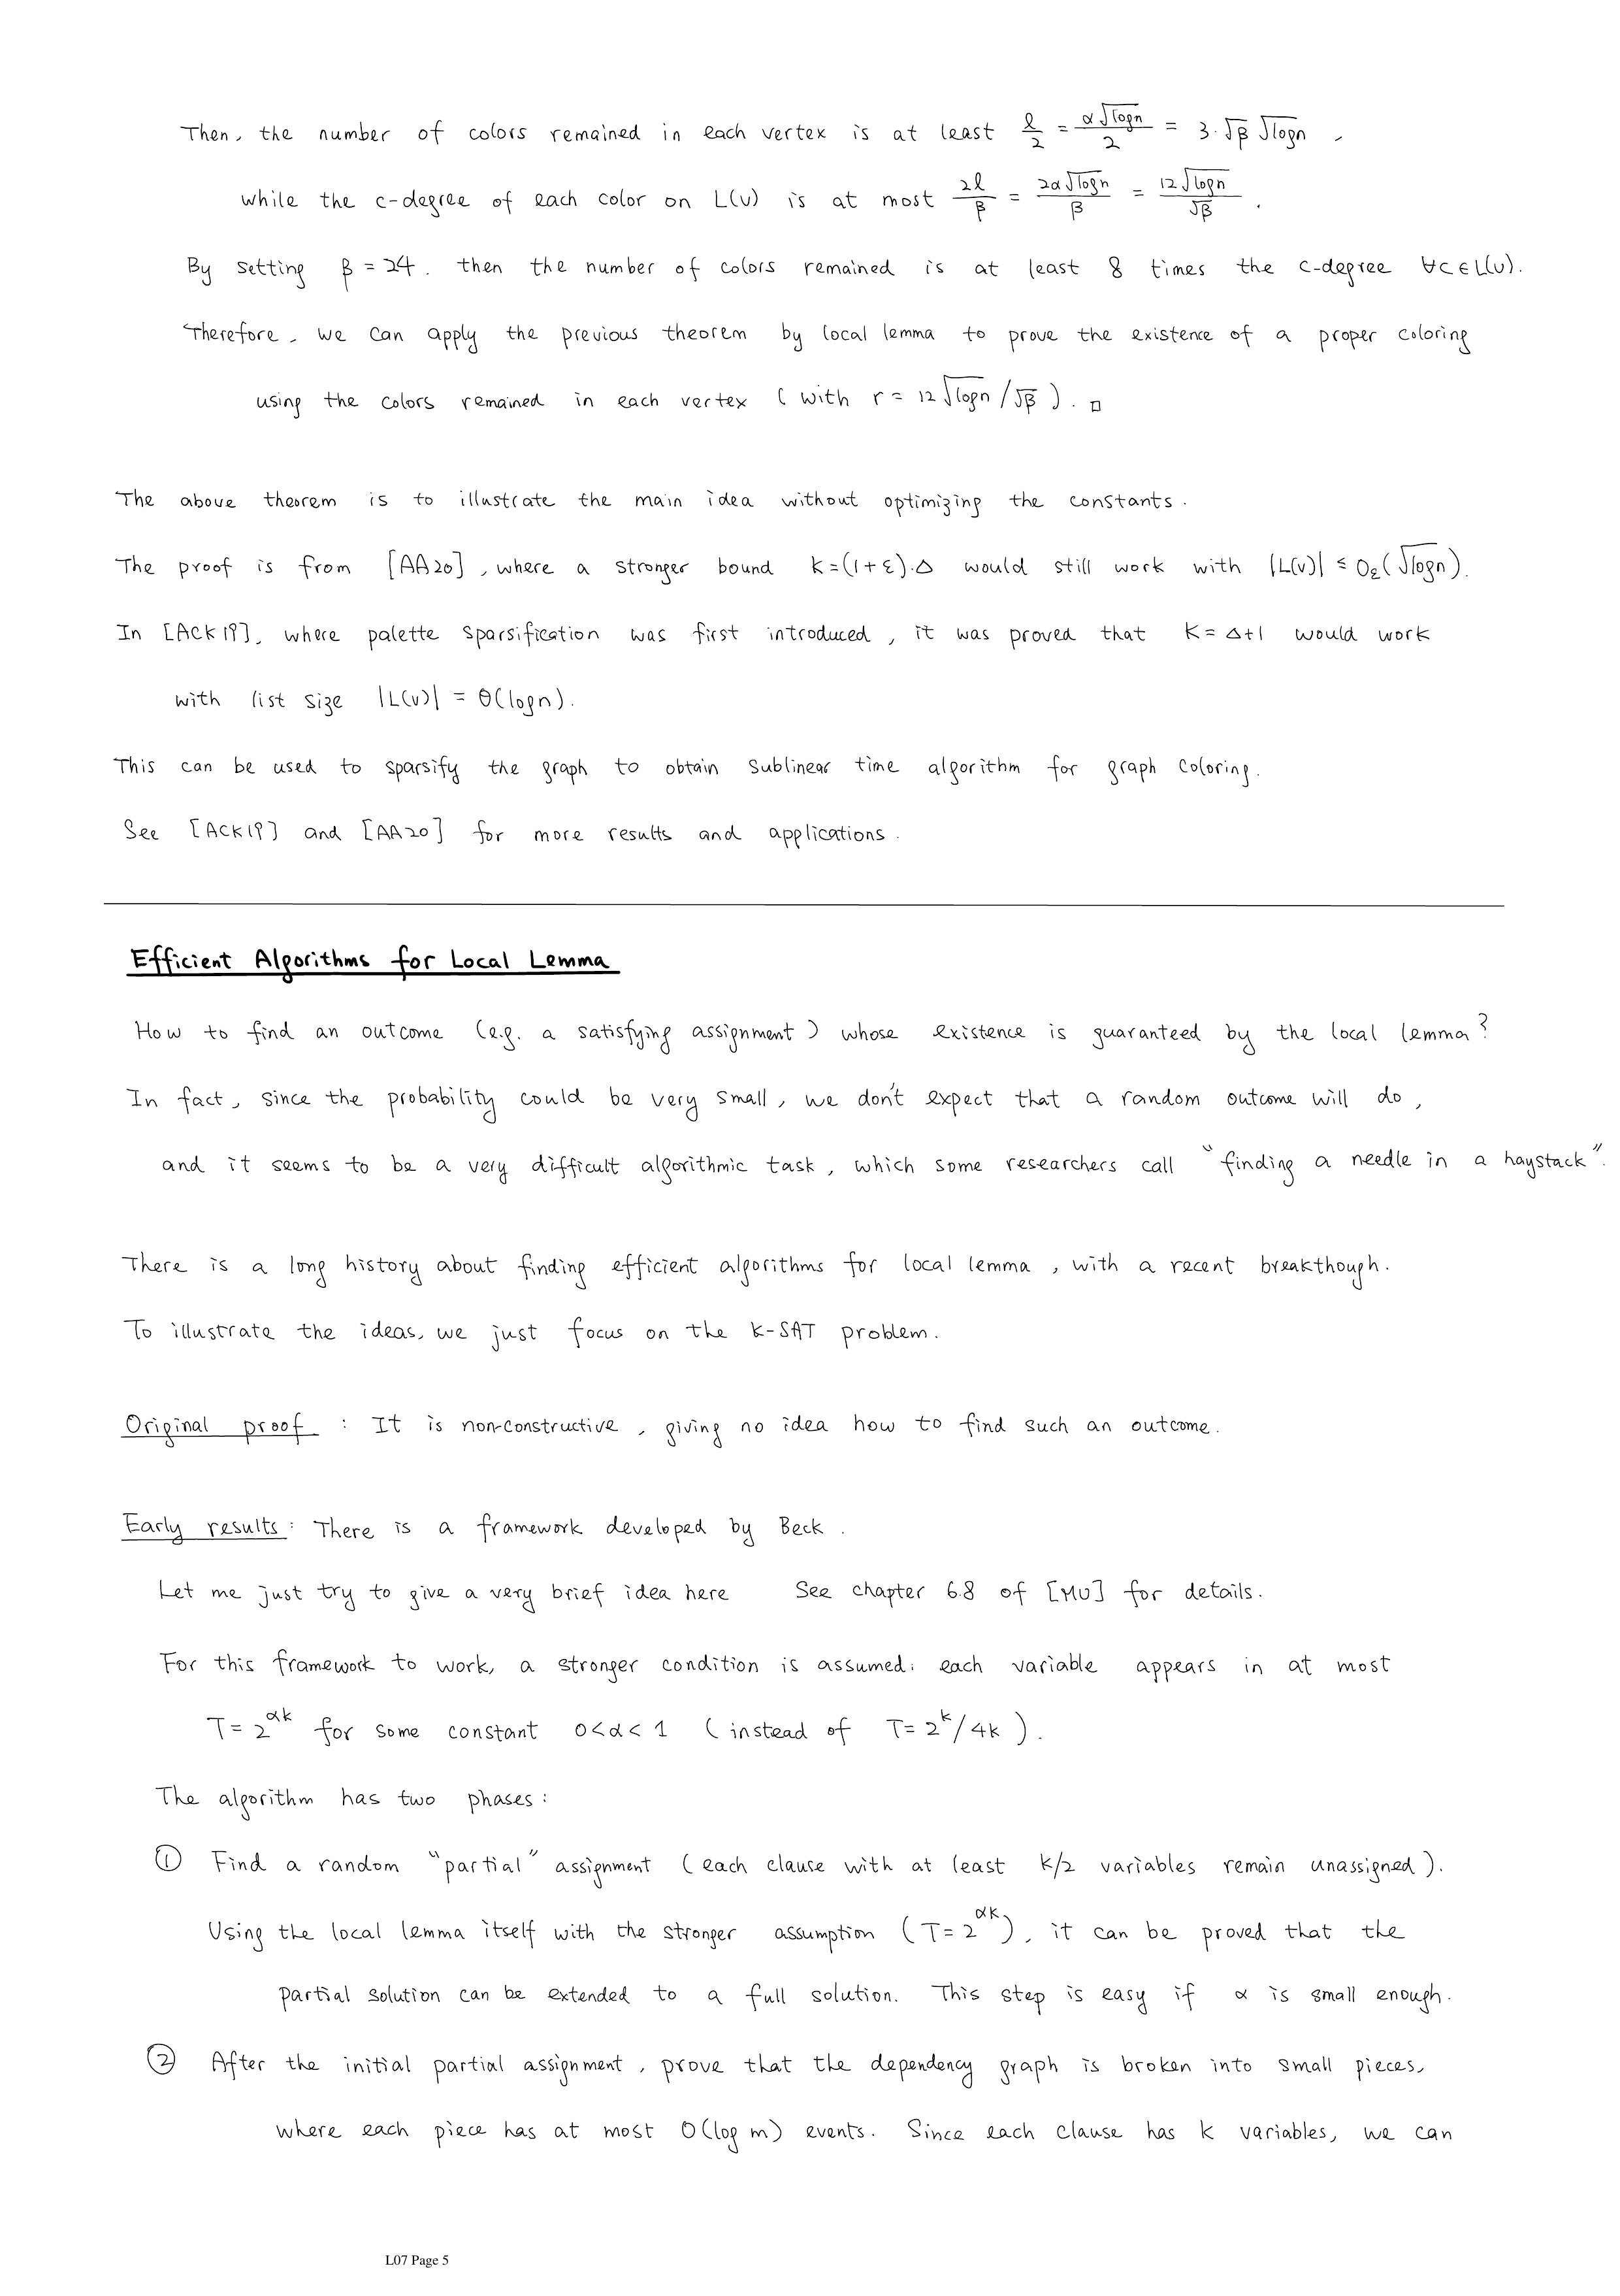 Then, the number of colors remained in each vertex is at least ℓ/2 = α√logn/2 = 3·√β √logn ,
while the c-degree of each color on L(v) is at most 2ℓ/β = 2α√logn/β = 12√logn/√β .
By setting β = 24, then the number of colors remained is at least 8 times the c-degree ∀c∈L(v).
Therefore, we can apply the previous theorem by local lemma to prove the existence of a proper coloring
using the colors remained in each vertex (with r = 12√logn/√β). □
The above theorem is to illustrate the main idea without optimizing the constants.
The proof is from [AA20], where a stronger bound k=(1+ε)·Δ would still work with |L(v)| ≤ Oε(√logn).
In [ACK19], where palette sparsification was first introduced, it was proved that k = Δ+1 would work
with list size |L(v)| = Θ(logn).
This can be used to sparsify the graph to obtain sublinear time algorithm for graph coloring.
See [ACK19] and [AA20] for more results and applications.
Efficient Algorithms for Local Lemma
How to find an outcome (e.g. a satisfying assignment) whose existence is guaranteed by the local lemma?
In fact, since the probability could be very small, we don't expect that a random outcome will do,
and it seems to be a very difficult algorithmic task, which some researchers call "finding a needle in a haystack".
There is a long history about finding efficient algorithms for local lemma, with a recent breakthough.
To illustrate the ideas, we just focus on the k-SAT problem.
Original proof : It is non-constructive, giving no idea how to find such an outcome.
Early results: There is a framework developed by Beck.
Let me just try to give a very brief idea here See chapter 6.8 of [MU] for details.
For this framework to work, a stronger condition is assumed: each variable appears in at most
T = 2^αk for some constant 0<α<1 (instead of T = 2^k/4k).
The algorithm has two phases:
① Find a random "partial" assignment (each clause with at least k/2 variables remain unassigned).
Using the local lemma itself with the stronger assumption (T=2^αk), it can be proved that the
partial solution can be extended to a full solution. This step is easy if α is small enough.
② After the initial partial assignment, prove that the dependency graph is broken into small pieces,
where each piece has at most O(log m) events. Since each clause has k variables, we can
L07 Page 5